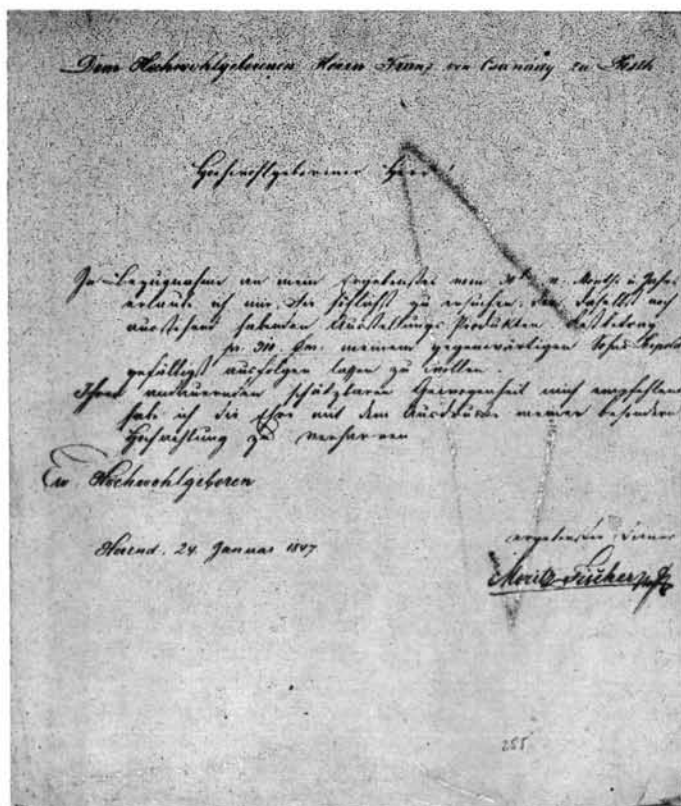 Dem Hochwohlgeborenen Herrn Franz von Csanády zu Pesth
Hochwohlgeborener Herr!
In Bezugnahme an mein Ergebenstes vom
erlaube ich mir, Sie höflichst zu ersuchen, den daselbst noch
ausstehend habenden Ausstellungs Produkten Restbetrag
pr. meinem gegenwärtigen Sohne Leopold
gefälligst ausfolgen lassen zu wollen.
Ihrer andauernden schätzbaren Gewogenheit mich empfehlend
habe ich die Ehre mit dem Ausdrucke meiner besondern
Hochachtung zu verharren
Eu. Hochwohlgeboren
Herend, 24. Januar 1847
ergebenster Diener
Moritz Fischer
255